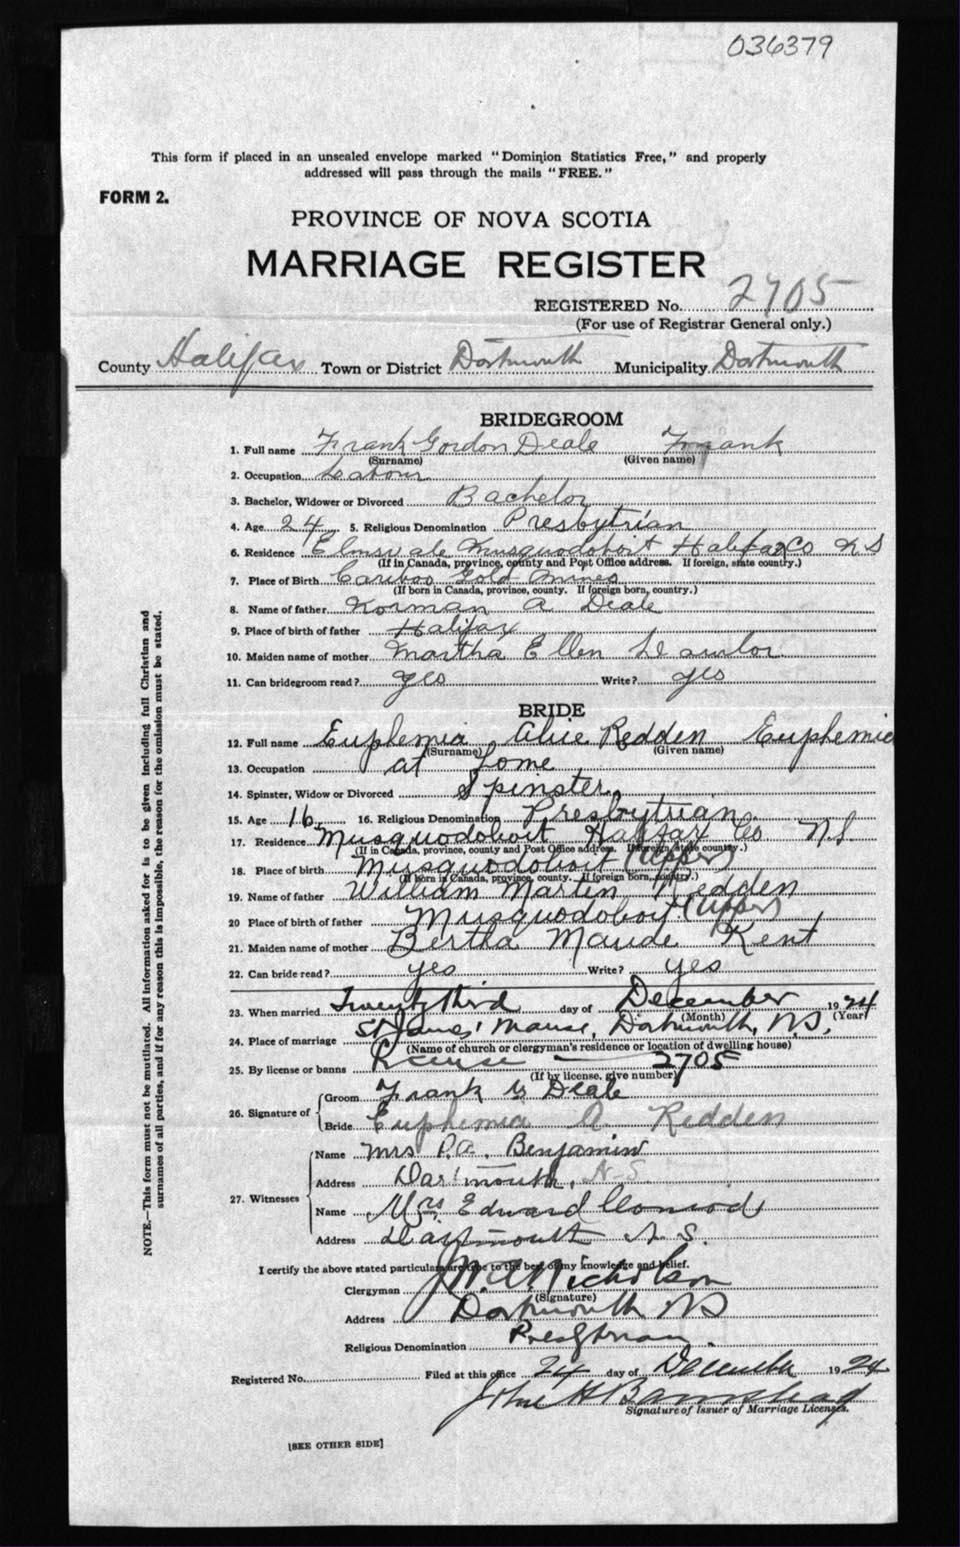 036379
This form if placed in an unsealed envelope marked "Dominion Statistics Free," and properly
addressed will pass through the mails "FREE."
FORM 2.
PROVINCE OF NOVA SCOTIA
MARRIAGE REGISTER
REGISTERED No. 2705
(For use of Registrar General only.)
County Halifax Town or District Dartmouth Municipality Dartmouth
BRIDEGROOM
1. Full name Frank Gordon Deale Frank
(Surname) (Given name)
2. Occupation Labour
3. Bachelor, Widower or Divorced Bachelor
4. Age 24 5. Religious Denomination Presbytrian
6. Residence Elmsvale Musquodoboit Halifax Co N S
(If in Canada, province, county and Post Office address. If foreign, state country.)
7. Place of Birth Cariboo Gold Mines
(If born in Canada, province, county. If foreign born, country.)
8. Name of father Norman A Deale
9. Place of birth of father Halifax
10. Maiden name of mother Martha Ellen
11. Can bridegroom read? yes Write? yes
BRIDE
12. Full name Euphemia Alice Redden Euphemia
(Surname) (Given name)
13. Occupation at Home
14. Spinster, Widow or Divorced Spinster
15. Age 16 16. Religious Denomination Presbytrian
17. Residence Musquodoboit Halifax Co N.S.
(If in Canada, province, county and Post Office address. If foreign, state country.)
18. Place of birth Musquodoboit (Upper)
(If born in Canada, province, county. If foreign born, country.)
19. Name of father William Martin Redden
20 Place of birth of father Musquodoboyt (Upper)
21. Maiden name of mother Bertha Maude Kent
22. Can bride read? yes Write? yes
23. When married Twenty third day of December 1924
(Month) (Year)
24. Place of marriage St James' Manse, Dartmouth, N.S.
(Name of church or clergyman's residence or location of dwelling house)
25. By license or banns License 2705
(If by license, give number)
26. Signature of
Groom Frank G Deale
Bride Euphemia A. Redden
27. Witnesses
Name Mrs P.A. Benjamin
Address Dartmouth, N.S.
Name Mrs Edward Conrod
Address Dartmouth N.S.
I certify the above stated particulars are true to the best of my knowledge and belief.
Clergyman Nicholson
(Signature)
Address Dartmouth NS
Religious Denomination Presbyterian.
Registered No. Filed at this office 24 day of December 1924
John H Barnstead
Signature of Issuer of Marriage Licenses.
[SEE OTHER SIDE]
NOTE.—This form must not be mutilated. All information asked for is to be given including full Christian and
surnames of all parties, and if for any reason this is impossible, the reason for the omission must be stated.